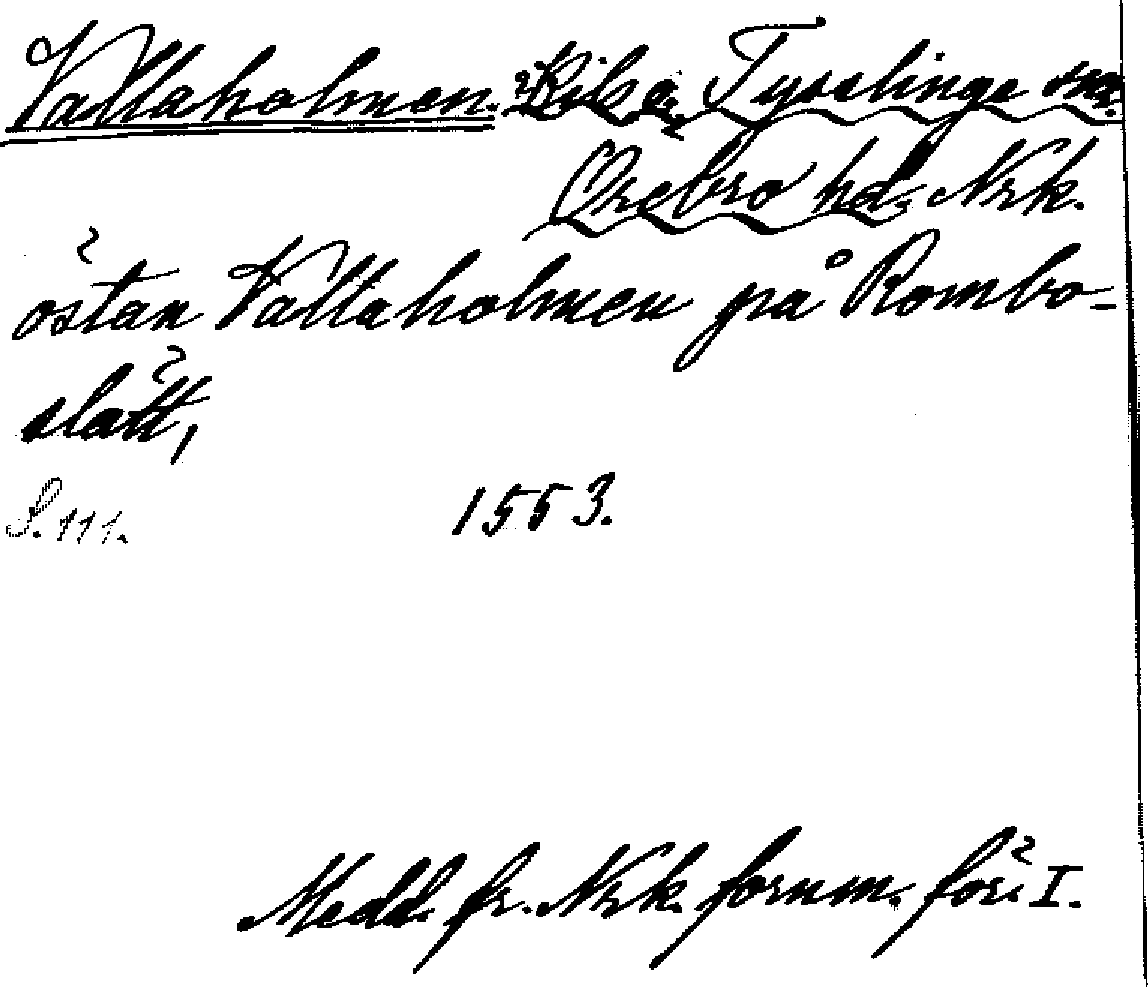 Vallaholmen. Tysslinge sn.
Örebro hd. Nrk.
östan Vallaholmen på Rombo-
slätt,
S. 111. 1553.
Medd. fr. Nrk. fornm. för. I.